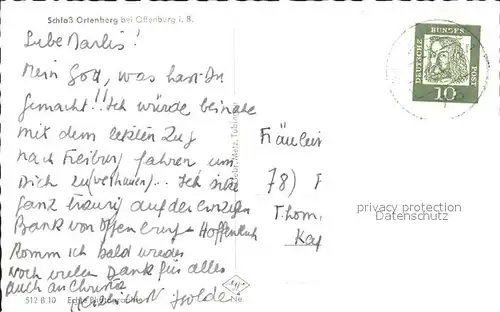 Schloß Ortenberg bei Offenburg i. B.
Liebe Marlis!
Mein Gott, was hast Du
gemacht!! Ich würde beinahe
mit dem letzten Zug
nach Freiburg fahren um
Dich zu (verhauen)... Ich sitze
ganz traurig auf der einzigen
Bank von Offenburg - Hoffentlich
Komm ich bald wieder
noch vielen Dank für alles
auch an Christa
Herzlichst Isolde
512 B 10
Metz, Tübingen
DEUTSCHE BUNDESPOST
10
Fräulein
78)
Thom
Kap
privacy protection
Datenschutz